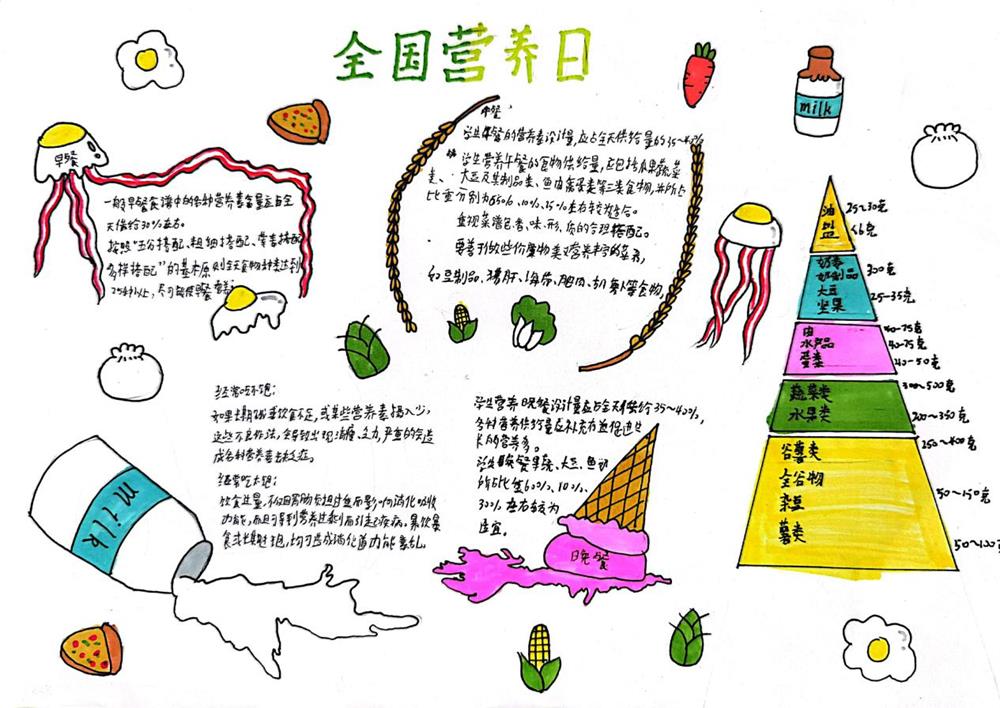 全国营养日
早餐
一般早餐食谱中的各种营养素含量应占全
天供给30%左右。
按照"五谷搭配、粗细搭配、荤素搭配
多样搭配"的基本原则全天食物种类达到
午餐
学生午餐的营养素设计量应占全天供给量的35~40%
学生营养午餐的食物供给量,应包括瓜果蔬菜
类、大豆及其制品类、鱼肉禽蛋类等三类食物,并所占
比重分别为65%、10%、25%左右较为适合。
重视菜谱色、香、味、形、质的合理搭配。
要善于做些价廉物美又营养丰富的菜,
如豆制品、猪肝、海带、肥肉、胡萝卜等食物,
milk
油 25~30克
盐 <6克
奶类
奶制品 300克
大豆
坚果 25~35克
肉 40~75克
水产品 40~75克
蛋类 40~50克
蔬菜类 300~500克
水果类 200~350克
谷薯类 250~400克
全谷物
杂豆 50~150克
薯类 50~100克
经常吃不饱:
如果长期饿或饮食不足,或某些营养素摄入少,
这些不良作法,会导致出现消瘦、乏力,严重的会造
成各种营养素缺乏症。
经常吃太饱:
饮食过量,不仅因胃肠负担过重而影响消化吸收
功能,而且可得到营养过剩而引起疾病。暴饮暴
食或长期过饱,均可造成消化道功能紊乱。
milk
学生营养晚餐设计量应占全天供给35~40%,
学生晚餐果蔬、大豆、鱼肉
所占比重60%、10%、
30%左右较为
适宜。
晚餐